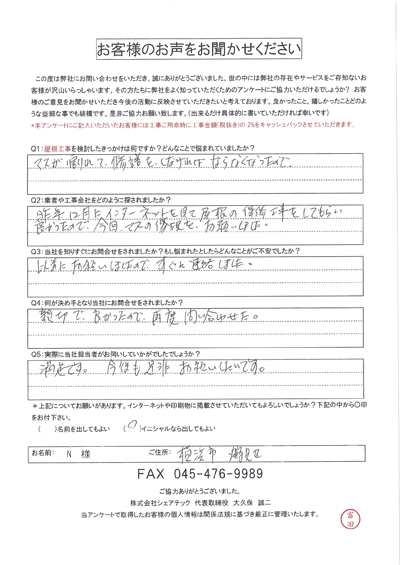 お客様のお声をお聞かせください
この度は弊社にお問い合わせをいただき、誠にありがとうございました。世の中には弊社の存在やサービスをご存知ないお
客様が沢山いらっしゃいます。その方たちに弊社をよく知っていただくためのアンケートにご協力いただけるでしょうか？お客
様のご意見をお聞かせいただき今後の活動に反映させていただきたいと考えております。良かったこと、嬉しかったことどのよ
うな些細な事でも結構です。是非ご協力お願い致します。（出来るだけ具体的に書いていただければ幸いです）
*本アンケートにご記入いただいたお客様には工事ご用命時に工事金額(税抜き)の2%をキャッシュバックさせていただきます。
Q1：屋根工事を検討したきっかけは何ですか？どんなことで悩まれていましたか？
マスが崩れて、修繕をしなければならなくなったので。
Q2：業者や工事会社をどのように探されましたか？
昨年12月にインターネットを見て屋根の保修工事をしてもらい
良かったので、今回、マスの修繕を、お願いした。
Q3：当社を知りすぐにお問合せをされましたか？もし悩まれたとしたらどんなことがご不安でしたか？
以前にお願いしたので、すぐに連絡しました。
Q4：何が決め手となり当社にお問合せをされましたか？
親切で、良かったので、再度問い合わせた。
Q5：実際に当社担当者がお伺いしていかがでしたでしょうか？
満足です。今後も是非お願いしたいです。
*上記についてお願いがあります。インターネットや印刷物に掲載させていただいてもよろしいでしょうか？下記の中から〇印
をお付下さい。
（　）名前を出してもよい　（〇）イニシャルなら出してもよい
お名前：　N 様　ご住所：　横浜市 鶴見区
FAX 045-476-9989
ご協力ありがとうございました。
株式会社シェアテック　代表取締役　大久保 誠二
当アンケートで取得したお客様の個人情報は関係法規に基づき厳正に管理いたします。
富田